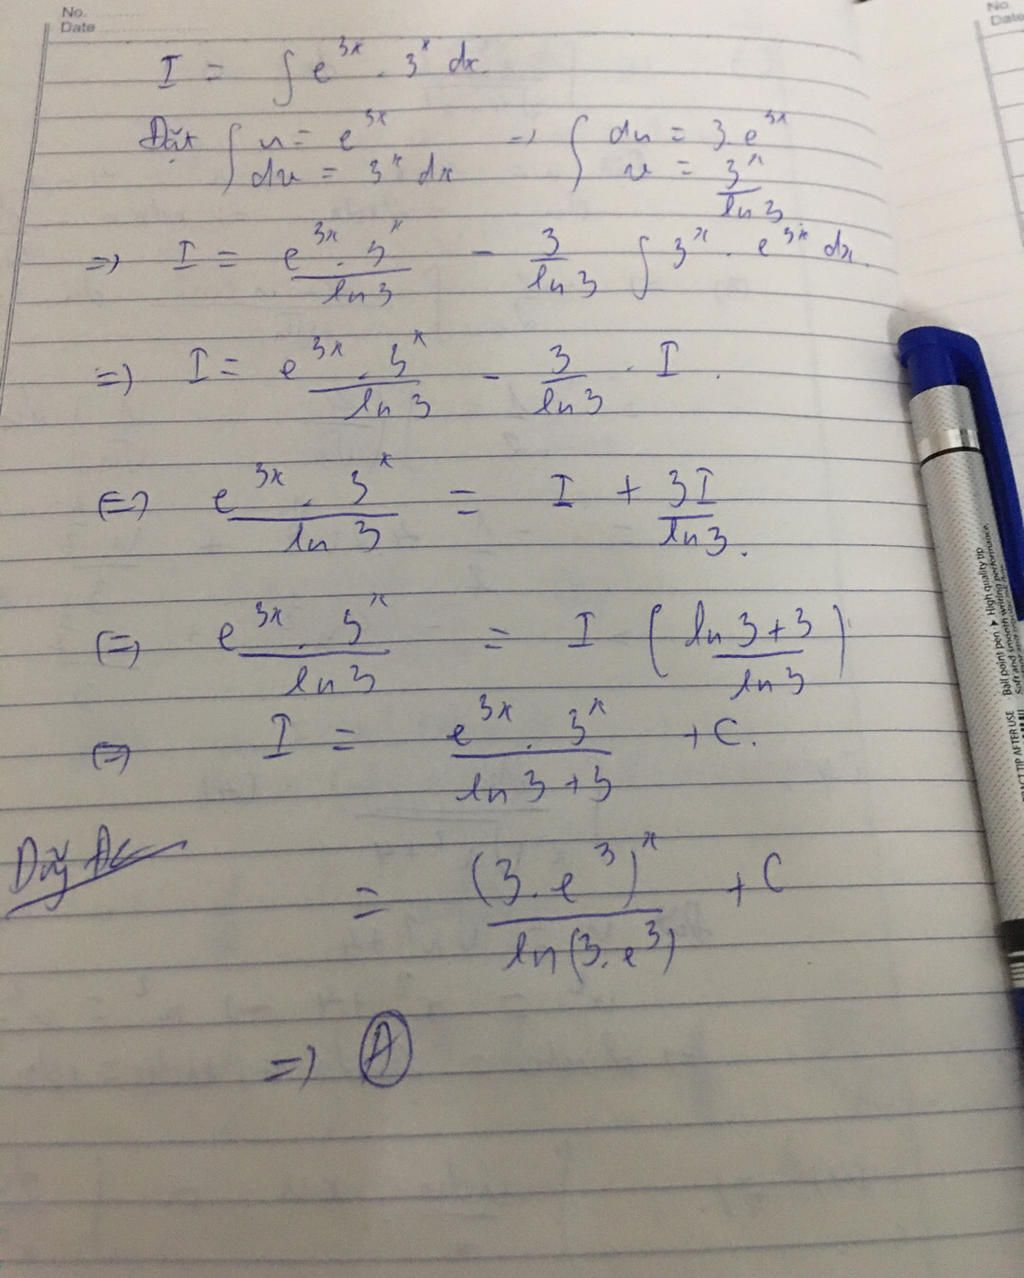 No.
Date
No
Date
I = ∫ e^{3x} . 3^x dx.
Đặt { u = e^{3x} => { du = 3.e^{3x}
dv = 3^x dx v = 3^x / ln 3
=> I = e^{3x} . 3^x / ln 3 - 3 / ln 3 ∫ 3^x . e^{3x} dx.
=> I = e^{3x} . 3^x / ln 3 - 3 / ln 3 . I .
<=> e^{3x} . 3^x / ln 3 = I + 3I / ln 3 .
<=> e^{3x} . 3^x / ln 3 = I ( ln 3 + 3 / ln 3 )
<=> I = e^{3x} . 3^x / ln 3 + 3 + C.
= (3 . e^3)^x / ln (3. e^3) + C
=> A
Ball point pen ▸ High quality tip
Soft and smooth writing performance
TIP AFTER USE